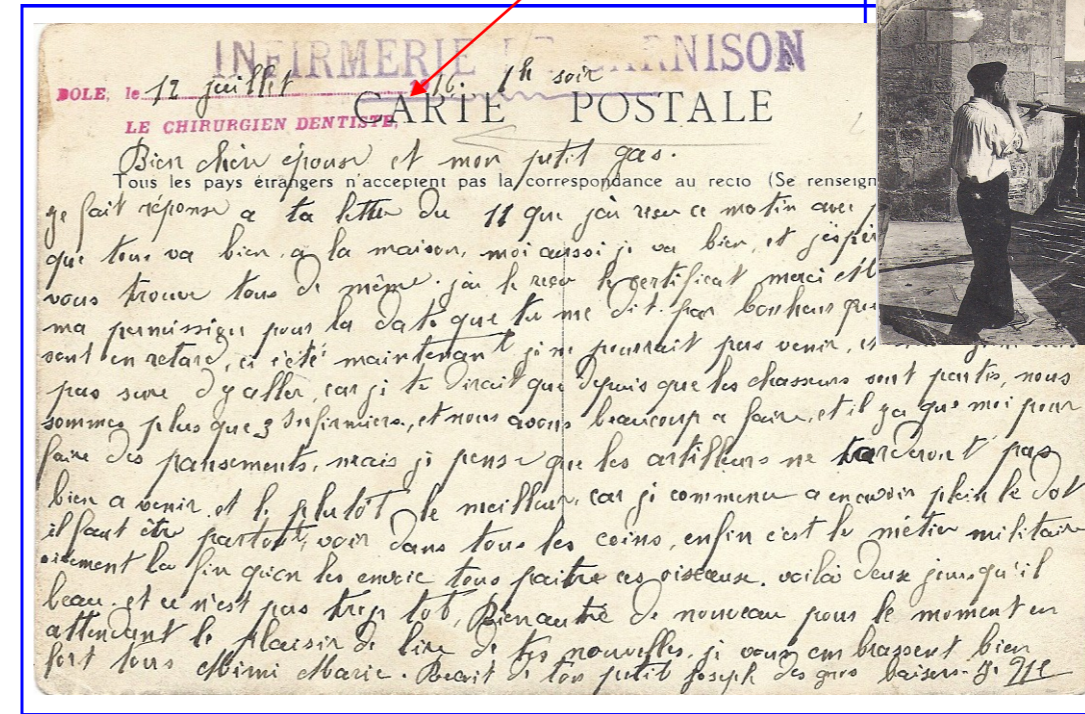 INFIRMERIE GARNISON
DOLE, le 12 juillet 16. 1h soir
CARTE POSTALE
LE CHIRURGIEN DENTISTE,
Bien chère épouse et mon petit gas.
Tous les pays étrangers n'acceptent pas la correspondance au recto (Se renseign
je fait réponse a ta lettre du 11 que j'ai reçu ce matin avec
que tous va bien a la maison, moi aussi je va bien, et j'espèr
vous trouve tous de même. j'ai le reçu le certificat merci et
ma permission pour la date que tu me dit. par bonheur que
sont en retard, ci c'été maintenant je ne pourrait pas venir,
pas sure d'y aller, car je te dirait que depuis que les chasseurs sont partis, nous
sommes plus que 3 Infirmiers, et nous avons beaucoup a faire, et il y a que moi pour
faire des pansements, mais je pense que les artilleurs ne tarderont pas
bien a venir et le plutôt le meilleur, car je commence a en avoir plein le dot
il faut être partout, voir dans tous les coins, enfin c'est le métier militaire
la fin qu'on les envoie tous paitre ces oiseause. voilà deux jours qu'il
beau. et ce n'est pas trop tot, Rien autre de nouveau pour le moment en
attendant le plaisir de lire de tes nouvelles. je vous embrassent bien
fort tous Mimi Marie. Reçoit de ton petit Joseph des gros baisers. J.